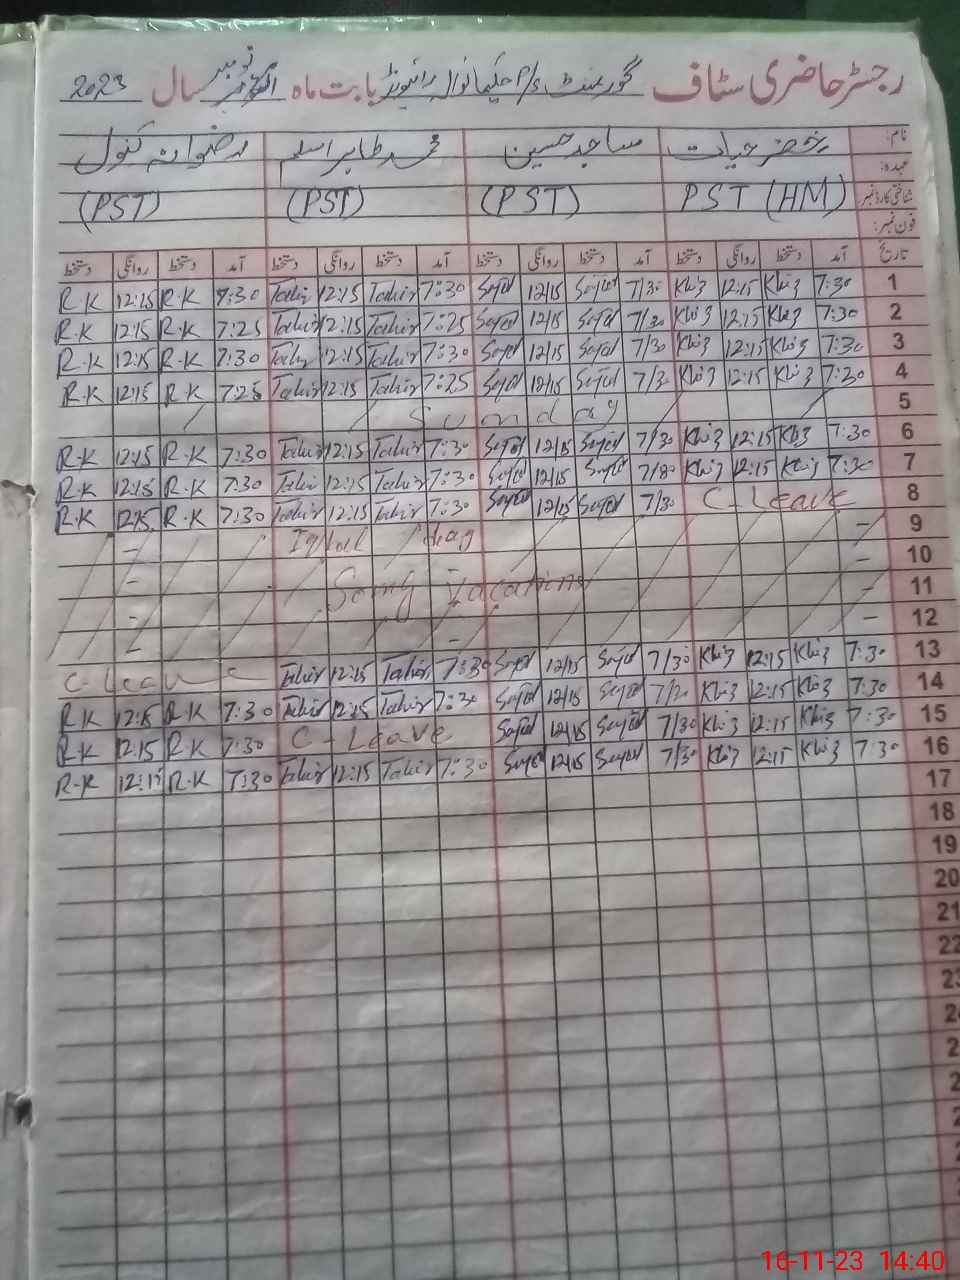 رجسٹر حاضری سٹاف گورنمنٹ P/S حکیمانوالہ رائیونڈ بابت ماہ نومبر سال 2023
نام: خضر حیات ساجد حسین محمد طاہر اسلم رضوانہ کنول
عہدہ:
شناختی کارڈ نمبر PST (HM) (PST) (PST) (PST)
فون نمبر:
تاریخ آمد دستخط روانگی دستخط آمد دستخط روانگی دستخط آمد دستخط روانگی دستخط آمد دستخط روانگی دستخط
R.K 12:15 R.K 7:30 Tahir 12:15 Tahir 7:30 Sajid 12/15 Sajid 7/30 Khiz 12:15 Khiz 7:30 1
R.K 12:15 R.K 7:25 Tahir 12:15 Tahir 7:25 Sajid 12/15 Sajid 7/30 Khiz 12:15 Khiz 7:30 2
R.K 12:15 R.K 7:30 Tahir 12:15 Tahir 7:30 Sajid 12/15 Sajid 7/30 Khiz 12:15 Khiz 7:30 3
R.K 12:15 R.K 7:25 Tahir 12:15 Tahir 7:25 Sajid 12/15 Sajid 7/30 Khiz 12:15 Khiz 7:30 4
Sunday 5
R.K 12:15 R.K 7:30 Tahir 12:15 Tahir 7:30 Sajid 12/15 Sajid 7/30 Khiz 12:15 Khiz 7:30 6
R.K 12:15 R.K 7:30 Tahir 12:15 Tahir 7:30 Sajid 12/15 Sajid 7/30 Khiz 12:15 Khiz 7:30 7
R.K 12:15 R.K 7:30 Tahir 12:15 Tahir 7:30 Sajid 12/15 Sajid 7/30 C-Leave 8
Iqbal day 9
10
Smog Vacations 11
12
C-Leave Tahir 12:15 Tahir 7:30 Sajid 12/15 Sajid 7/30 Khiz 12:15 Khiz 7:30 13
R.K 12:15 R.K 7:30 Tahir 12:15 Tahir 7:30 Sajid 12/15 Sajid 7/30 Khiz 12:15 Khiz 7:30 14
R.K 12:15 R.K 7:30 C-Leave Sajid 12/15 Sajid 7/30 Khiz 12:15 Khiz 7:30 15
R.K 12:15 R.K 7:30 Tahir 12:15 Tahir 7:30 Sajid 12/15 Sajid 7/30 Khiz 12:15 Khiz 7:30 16
17
18
19
20
21
22
16-11-23 14:40